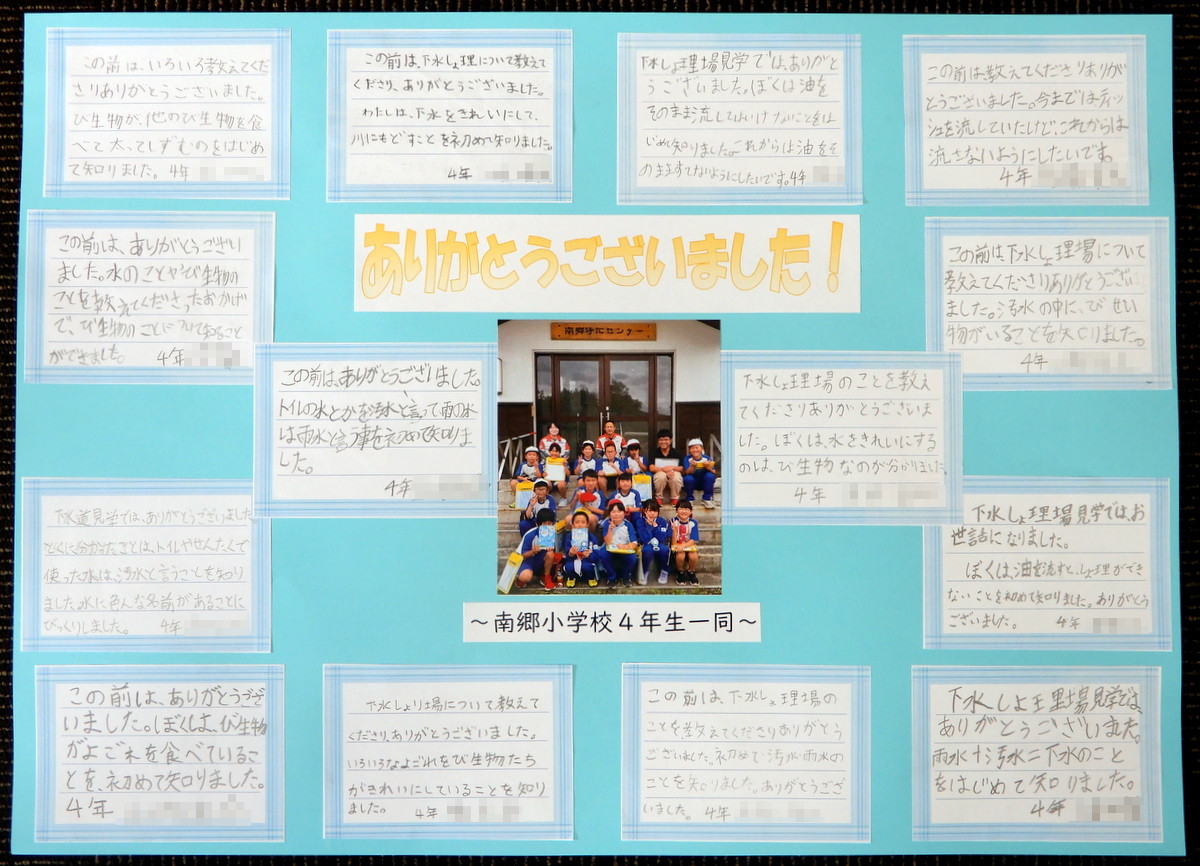 この前は、いろいろ教えてくだ
さりありがとうございました。
び生物が、他のび生物を食
べて太ってしずむのをはじめ
て知りました。 4年
この前は、下水しょ理について教えて
くださり、ありがとうございました。
わたしは、下水をきれいにして、
川にもどすことを初めて知りました。
4年
下水しょ理場見学では、ありがと
うございました。ぼくは油を
そのまま流してはいけないことをは
じめて知りました。これからは油をそ
のまますてないようにしたいです。4年
この前は教えてくださりありが
とうございました。今まではティッ
シュを流していたけど、これからは
流さないようにしたいです。
4年
ありがとうございました!
この前は、ありがとうござい
ました。水のことやび生物の
ことを教えてくださったおかげ
で、び生物のことについて知ること
ができました。 4年
この前は下水しょ理場について
教えてくださりありがとうござい
ました。汚水の中に、びせい
物がいることを知りました。
4年
この前は、ありがとうございました。
トイレの水とかを汚水と言って雨の水
は雨水と言う事を初めて知りま
した。
4年
南郷浄化センター
下水しょ理場のことを教え
てくださりありがとうございま
した。ぼくは、水をきれいにする
のは、び生物なのが分かりました。
4年
下水道見学では、ありがとうございました。
とくに分かったことは、トイレやせんたくで
使った水は、汚水と言うことを知り
ました。水に色んな名前があることに
びっくりしました。 4年
下水しょ理場見学では、お
世話になりました。
ぼくは、油を流すと、しょ理ができ
ないことを初めて知りました。ありがとう
ございました。 4年
~南郷小学校4年生一同~
この前は、ありがとうござ
いました。ぼくは、び生物
がよごれを食べているこ
とを、初めて知りました。
4年
下水しょり場について教えて
くださり、ありがとうございました。
いろいろなよごれをび生物たち
がきれいにしていることを知り
ました。 4年
この前は、下水しょ理場の
ことを教えてくださりありがとう
ございました。初めて汚水・雨水の
ことを知りました。ありがとうござ
いました。 4年
下水しょ理場見学では、
ありがとうございました。
雨水+汚水=下水のこと
をはじめて知りました。
4年